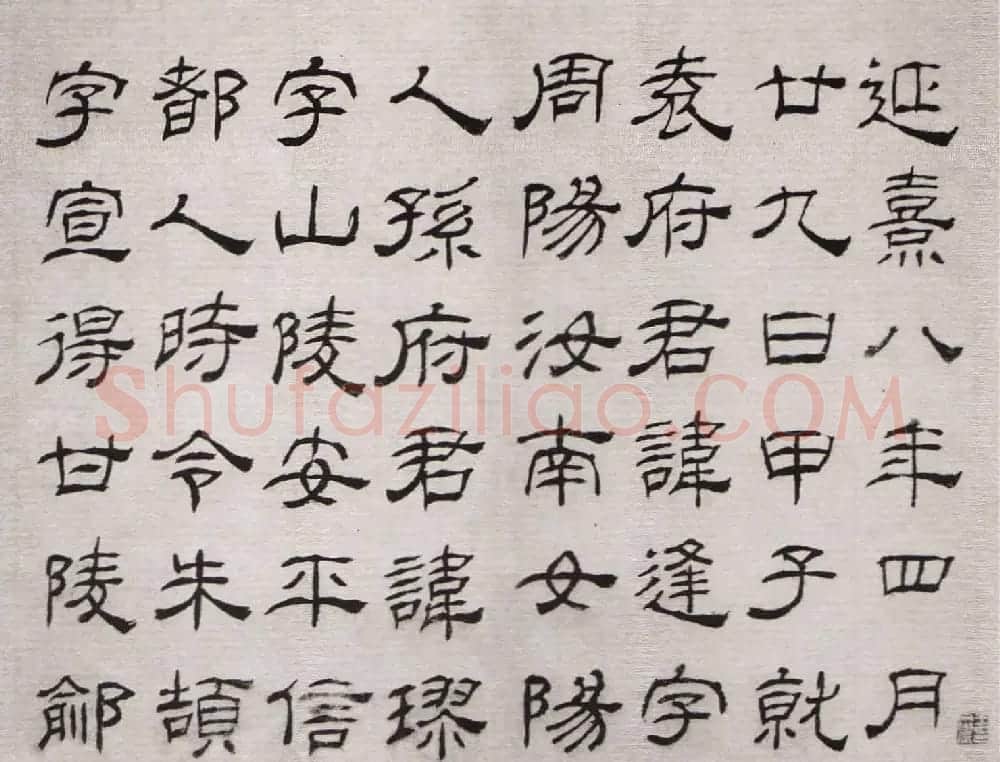 延熹八年四月
廿九日甲子就
袁府君諱逢字
周陽汝南女陽
人孫府君諱璆
字山陵安平信
都人時令朱頡
字宣得甘陵鄃
Shufaziliao.COM